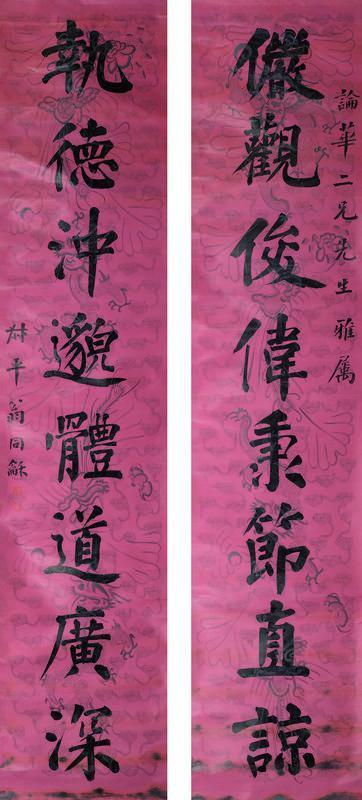 論華二兄先生雅屬
儼觀俊偉秉節直諒
執德沖邈體道廣深
叔平翁同龢